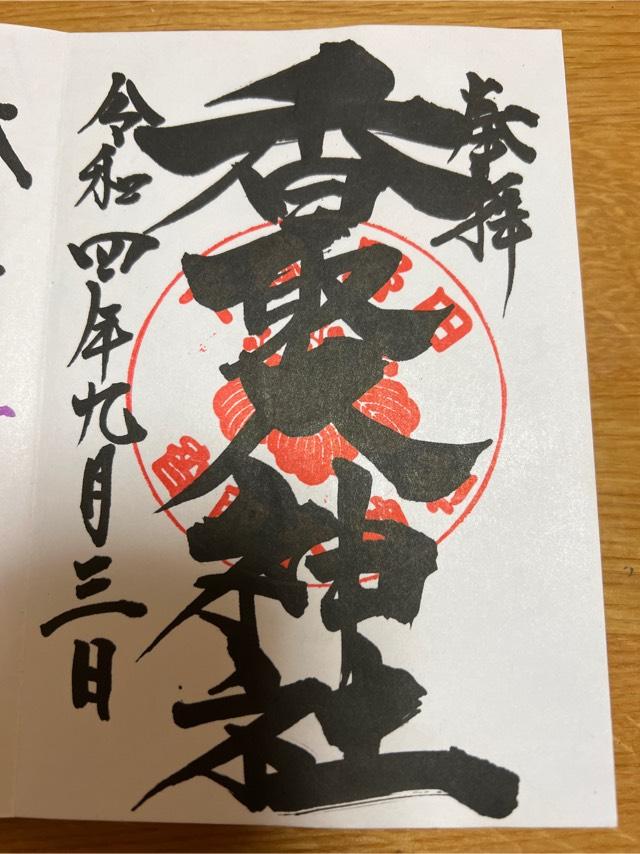 奉拝
香取神社
令和四年九月三日